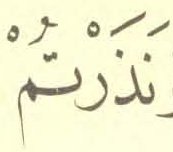 نَذَرْتُمْ